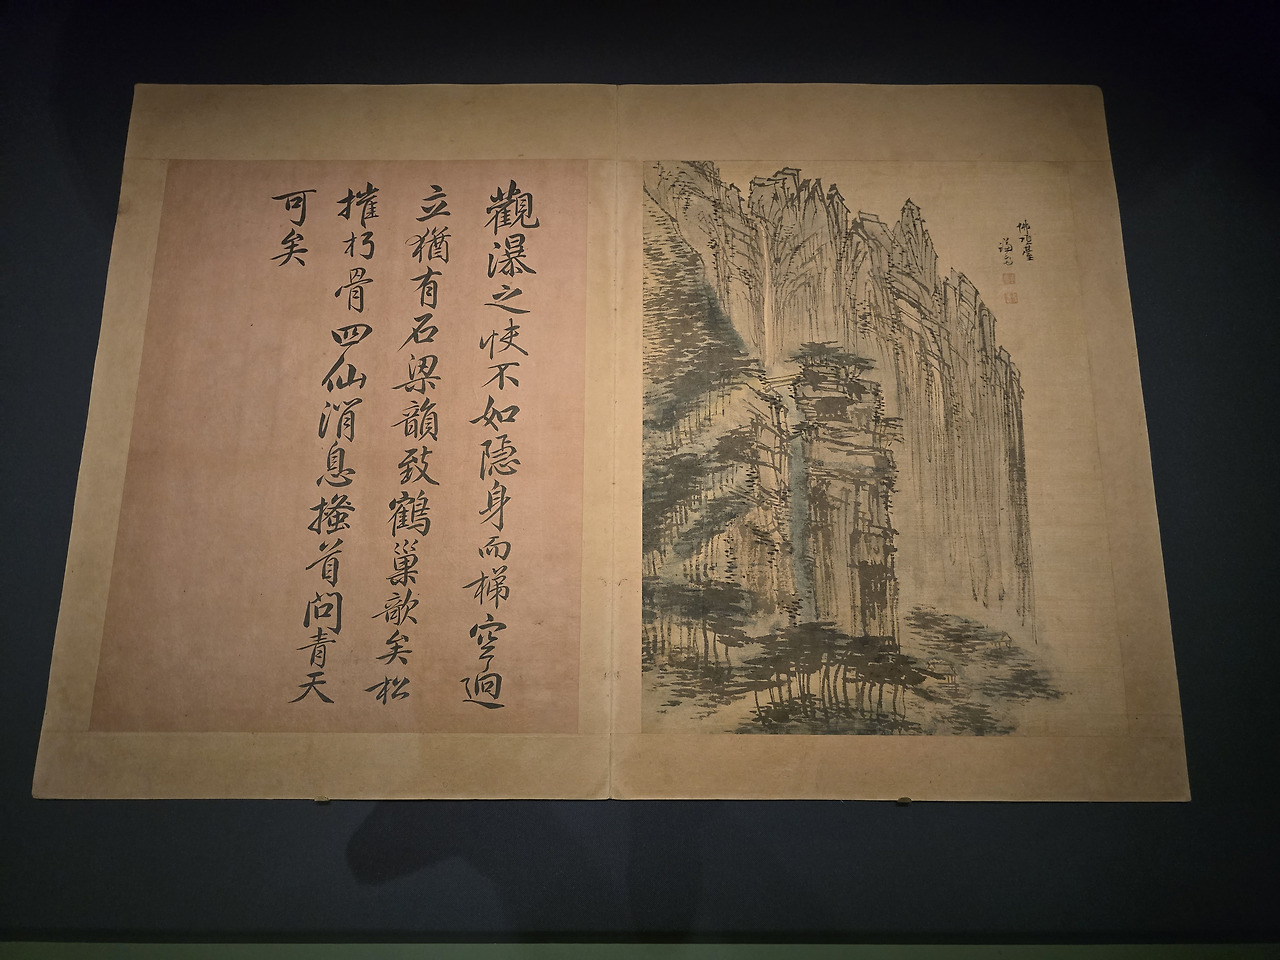 佛頂臺
謙齋
觀瀑之快不如隱身而梯空迥
立猶有石梁韻致鶴巢欹矣松
摧朽骨四仙消息搔首問青天
可矣